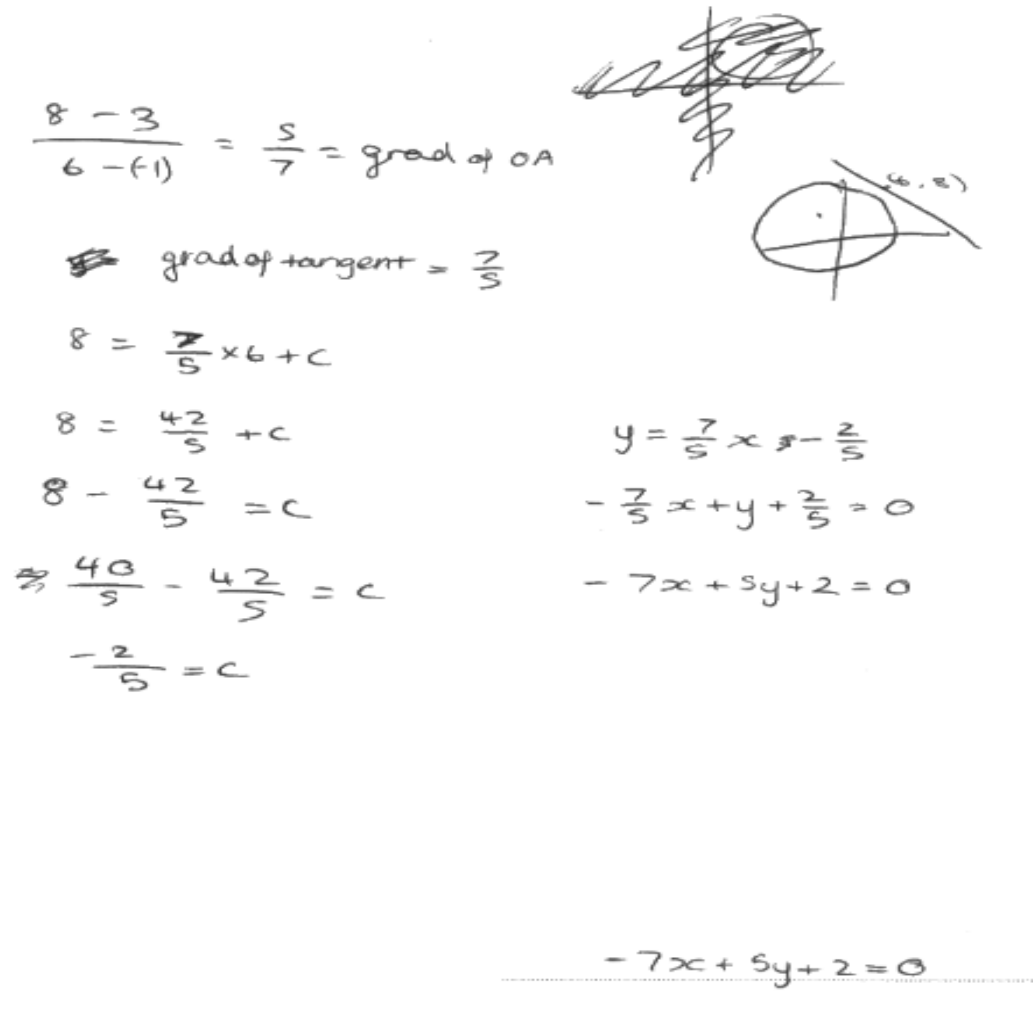 8 - 3 / 6 - (-1) = 5/7 = grad of OA
(6, 8)
grad of tangent = 7/5
8 = 7/5 × 6 + c
8 = 42/5 + c
8 - 42/5 = c
40/5 - 42/5 = c
-2/5 = c
y = 7/5 x - 2/5
- 7/5 x + y + 2/5 = 0
- 7x + 5y + 2 = 0
- 7x + 5y + 2 = 0